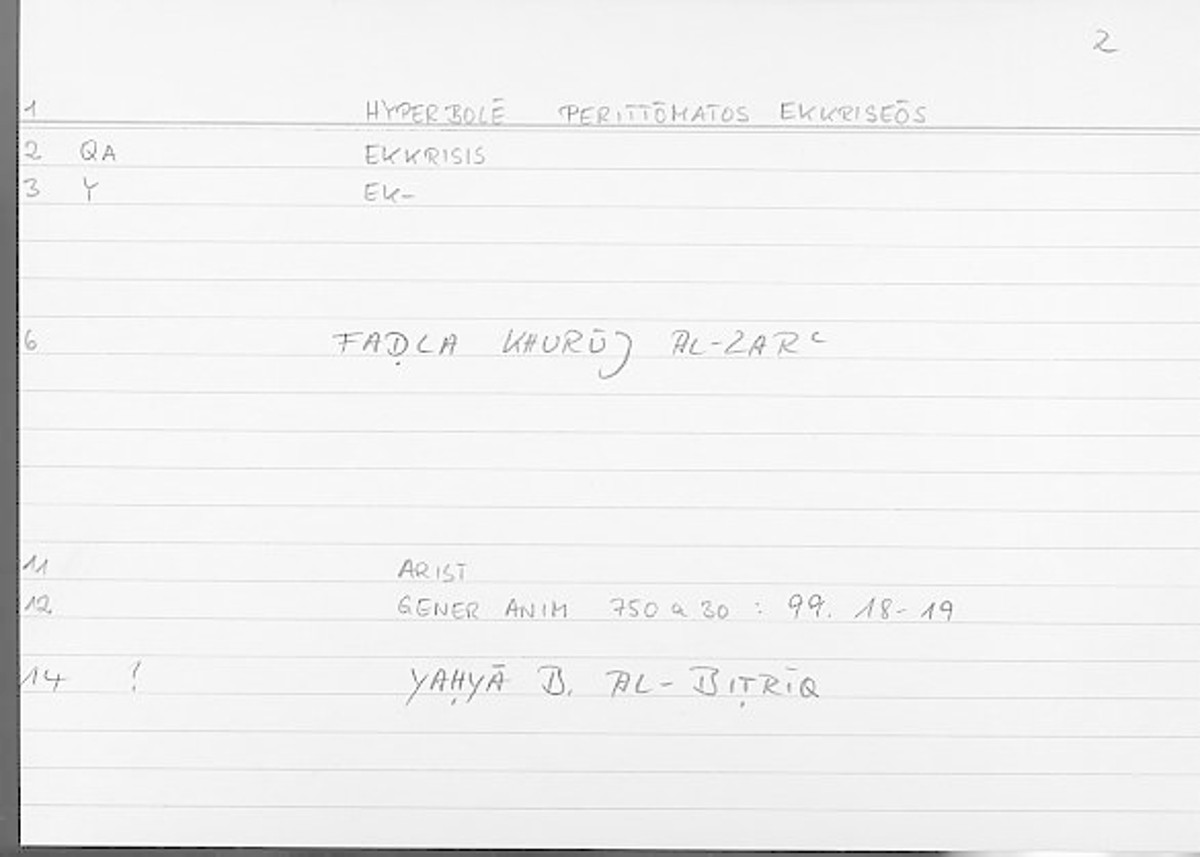 2
1 HYPERBOLĒ PERITTŌMATOS EKKRISEŌS
2 QA EKKRISIS
3 Y EK-
6 FAḌLA KHURŪJ AL-ZARʿ
11 ARIST
12 GENER ANIM 750 a 30 : 99. 18-19
14 ! YAḤYĀ B. AL-BIṬRĪQ